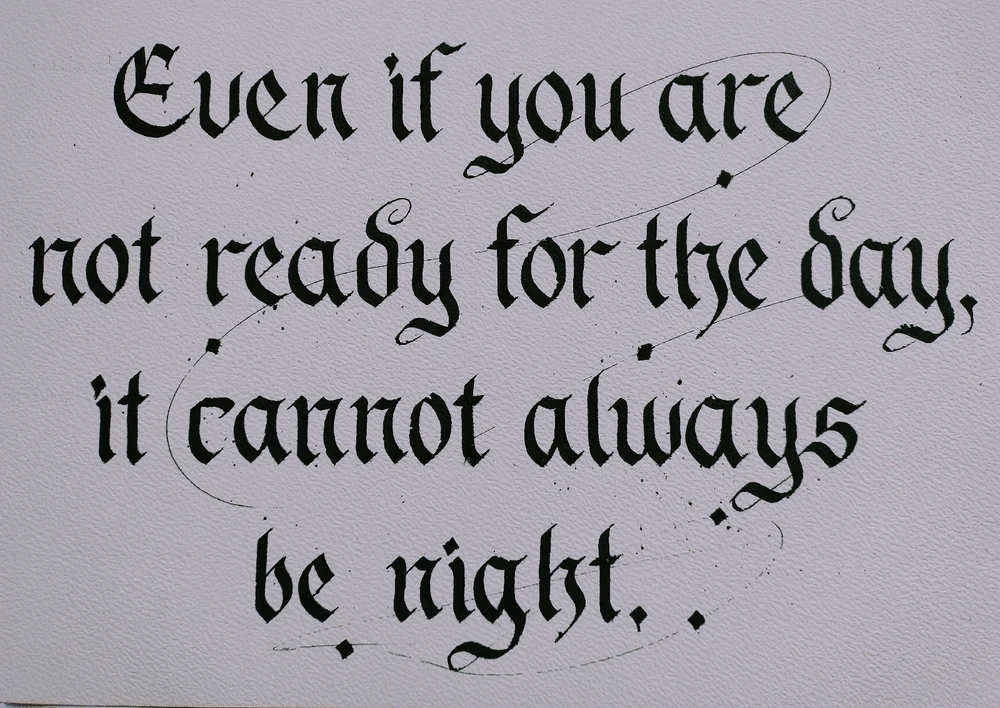 Even if you are
not ready for the day,
it cannot always
be night.